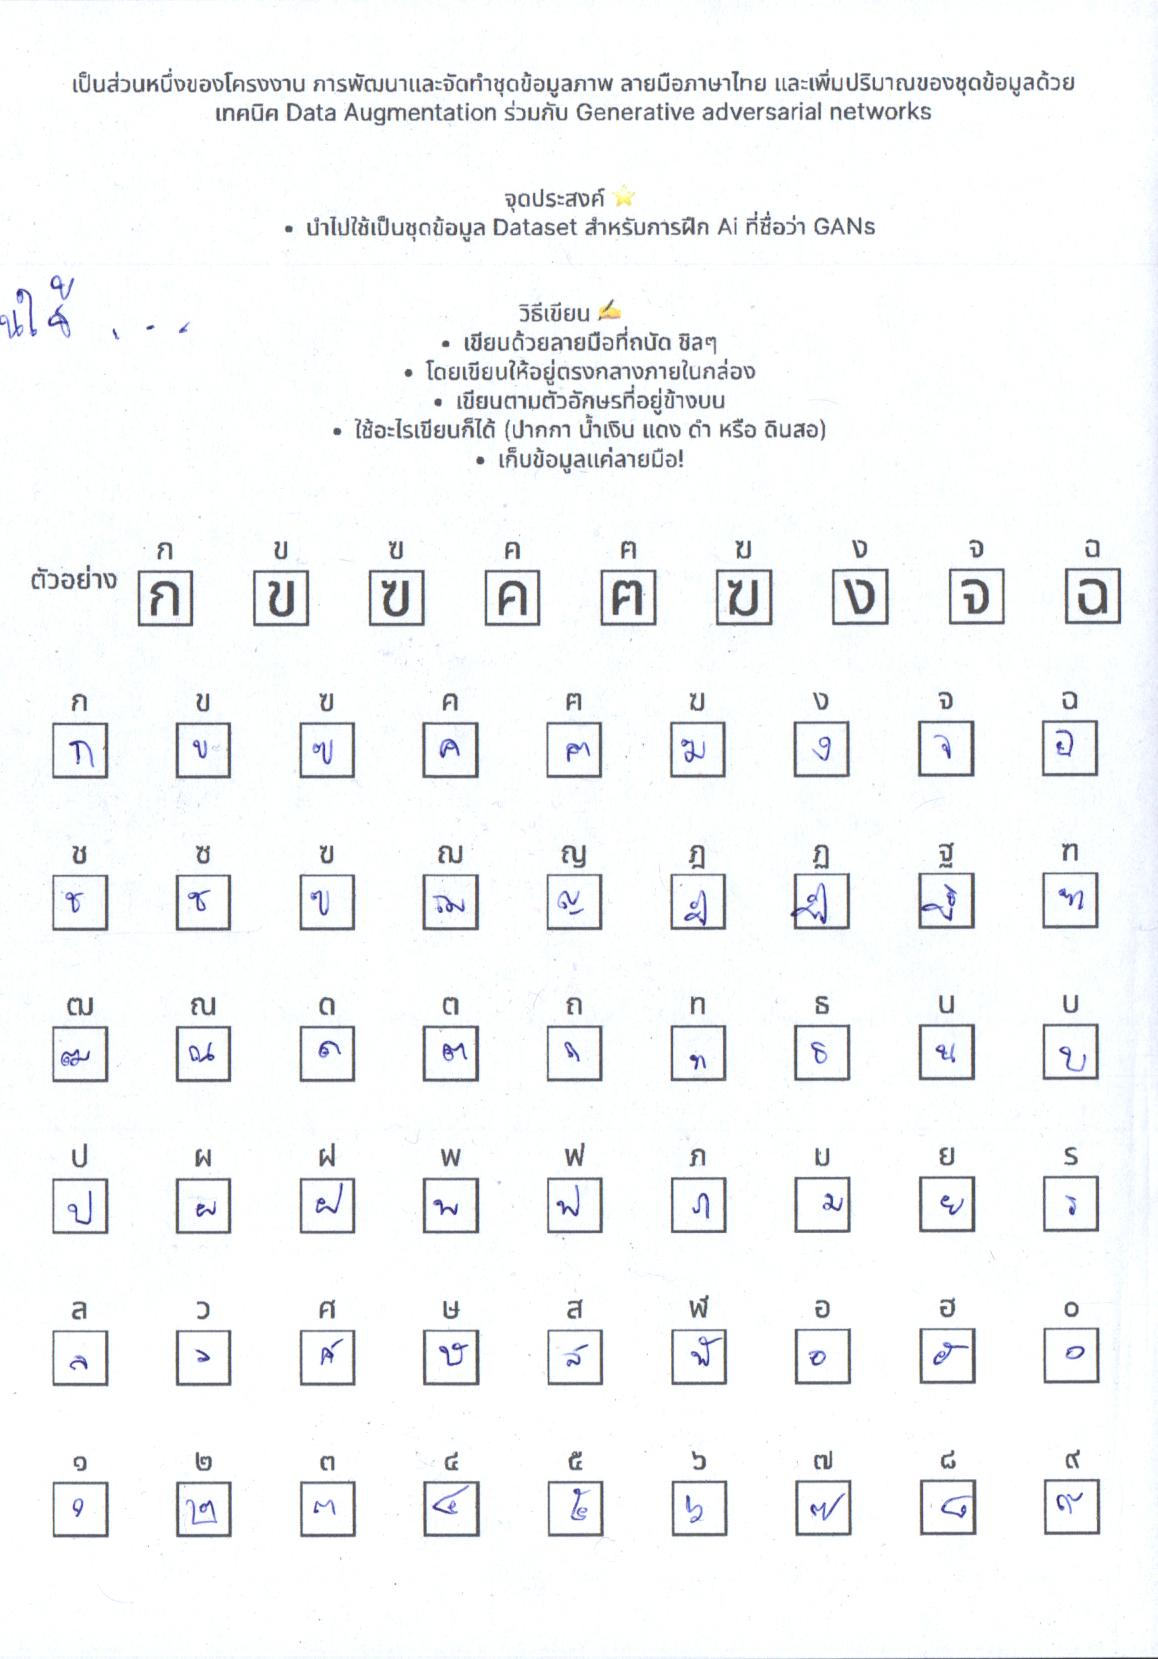 เป็นส่วนหนึ่งของโครงงาน การพัฒนาและจัดทำชุดข้อมูลภาพ ลายมือภาษาไทย และเพิ่มปริมาณของชุดข้อมูลด้วย
เทคนิค Data Augmentation ร่วมกับ Generative adversarial networks
จุดประสงค์ ⭐
• นำไปใช้เป็นชุดข้อมูล Dataset สำหรับการฝึก Ai ที่ชื่อว่า GANs
วิธีเขียน ✍
• เขียนด้วยลายมือที่ถนัด ชิลๆ
• โดยเขียนให้อยู่ตรงกลางภายในกล่อง
• เขียนตามตัวอักษรที่อยู่ข้างบน
• ใช้อะไรเขียนก็ได้ (ปากกา น้ำเงิน แดง ดำ หรือ ดินสอ)
• เก็บข้อมูลแค่ลายมือ!
ก ข ฃ ค ฅ ฆ ง จ ฉ
ตัวอย่าง ก ข ฃ ค ฅ ฆ ง จ ฉ
ก ข ฃ ค ฅ ฆ ง จ ฉ
ก ข ฃ ค ฅ ฆ ง จ ฉ
ช ซ ฃ ฌ ญ ฎ ฏ ฐ ฑ
ช ซ ฃ ฌ ญ ฎ ฏ ฐ ฑ
ฒ ณ ด ต ถ ท ธ น บ
ฒ ณ ด ต ถ ท ธ น บ
ป ผ ฝ พ ฟ ภ ม ย ร
ป ผ ฝ พ ฟ ภ ม ย ร
ล ว ศ ษ ส ฬ อ ฮ ๐
ล ว ศ ษ ส ฬ อ ฮ ๐
๑ ๒ ๓ ๔ ๕ ๖ ๗ ๘ ๙
๑ ๒ ๓ ๔ ๕ ๖ ๗ ๘ ๙